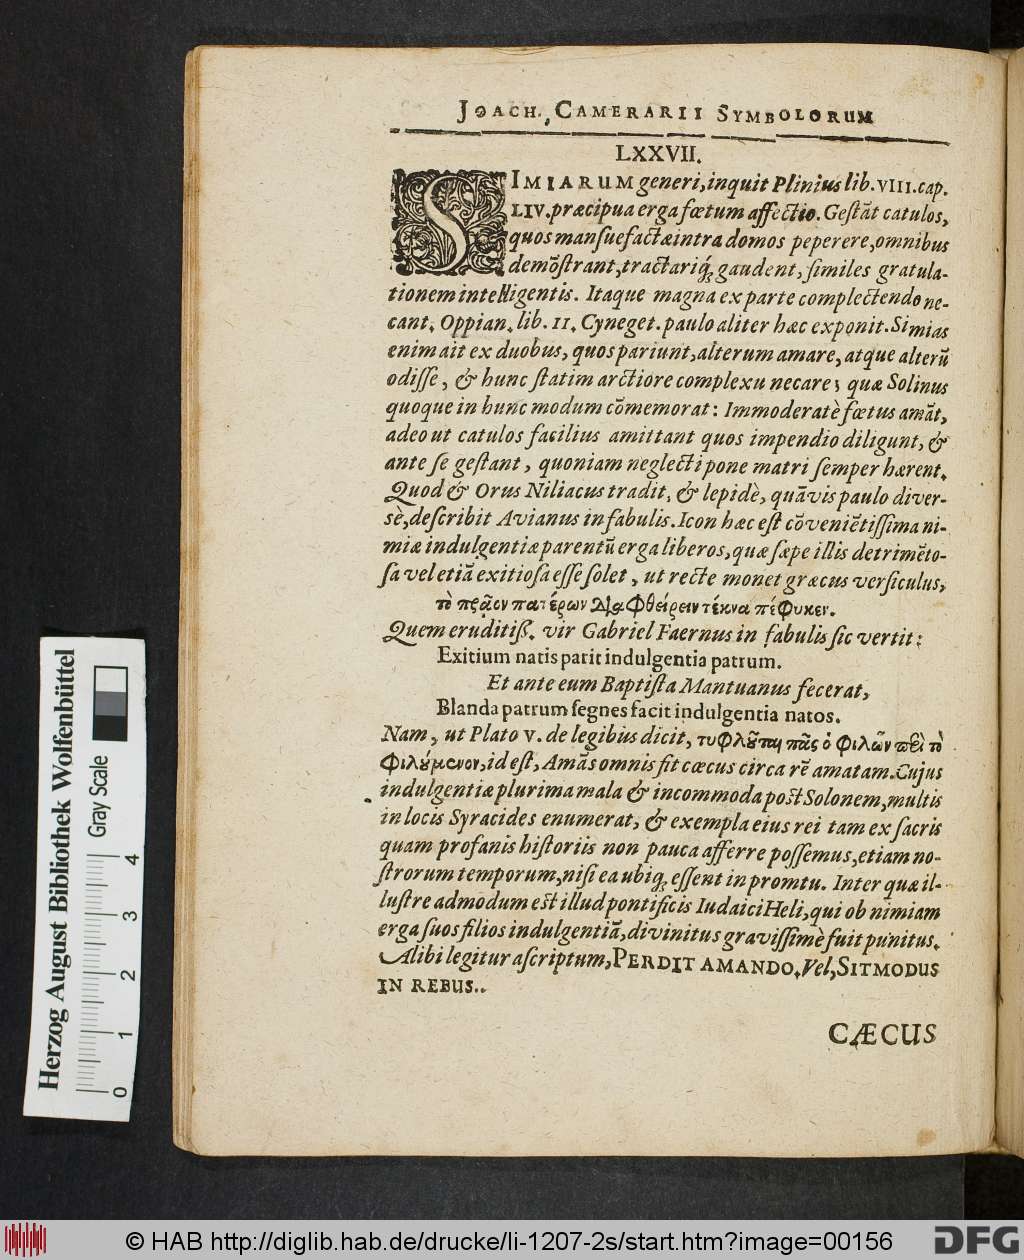 JOACH. CAMERARII SYMBOLORUM
LXXVII.
SIMIARUM generi, inquit Plinius lib. VIII. cap.
LIV. præcipua erga fœtum affectio. Gestãt catulos,
quos mansuefactæ intra domos peperere, omnibus
demõstrant, tractariq́; gaudent, similes gratula-
tionem intelligentis. Itaque magna ex parte complectendo ne-
cant. Oppian. lib. II. Cyneget. paulo aliter hæc exponit. Simias
enim ait ex duobus, quos pariunt, alterum amare, atque alterũ
odisse, & hunc statim arctiore complexu necare; quæ Solinus
quoque in hunc modum cõmemorat: Immoderatè fœtus amãt,
adeo ut catulos facilius amittant quos impendio diligunt, &
ante se gestant, quoniam neglecti pone matri semper hærent.
Quod & Orus Niliacus tradit, & lepidè, quãvis paulo diver-
sè, describit Avianus in fabulis. Icon hæc est cõveniẽtissima ni-
miæ indulgentiæ parentũ erga liberos, quæ sæpe illis detrimẽto-
sa vel etiã exitiosa esse solet, ut recte monet græcus versiculus,
τὸ πρᾶον πατέρων διαφθείρειν τέκνα πέφυκεν.
Quem eruditiß. vir Gabriel Faernus in fabulis sic vertit:
Exitium natis parit indulgentia patrum.
Et ante eum Baptista Mantuanus fecerat,
Blanda patrum segnes facit indulgentia natos.
Nam, ut Plato v. de legibus dicit, τυφλοῦται πᾶς ὁ φιλῶν περὶ τὸ
φιλούμενον, id est, Amãs omnis fit cæcus circa rẽ amatam. Cujus
indulgentiæ plurima mala & incommoda post Solonem, multis
in locis Syracides enumerat, & exempla eius rei tam ex sacris
quam profanis historiis non pauca afferre possemus, etiam no-
strorum temporum, nisi ea ubiq; essent in promtu. Inter quæ il-
lustre admodum est illud pontificis Iudaici Heli, qui ob nimiam
erga suos filios indulgentiã, divinitus gravissimè fuit punitus.
Alibi legitur ascriptum, PERDIT AMANDO. Vel, SIT MODUS
IN REBUS..
CÆCUS
Herzog August Bibliothek Wolfenbüttel
Gray Scale
0 1 2 3 4
© HAB http://diglib.hab.de/drucke/li-1207-2s/start.htm?image=00156
DFG